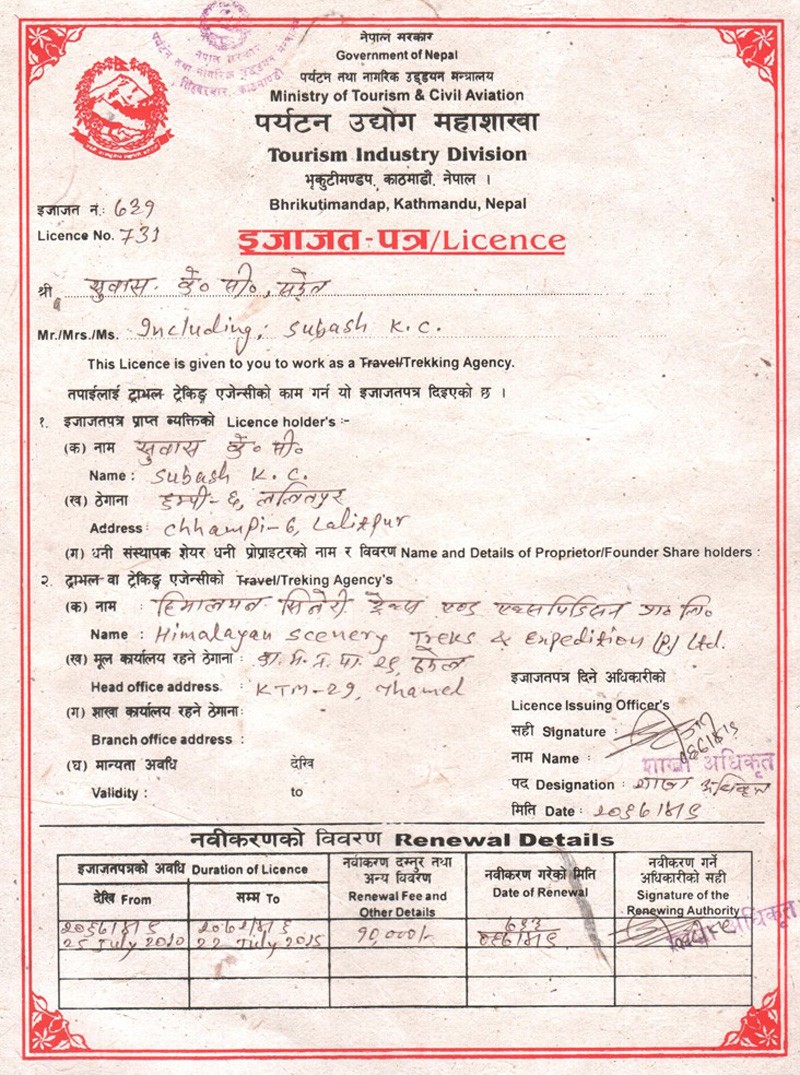 नेपाल सरकार
Government of Nepal
पर्यटन तथा नागरिक उड्डयन मन्त्रालय
Ministry of Tourism & Civil Aviation
पर्यटन उद्योग महाशाखा
Tourism Industry Division
भृकुटीमण्डप, काठमाडौं, नेपाल ।
Bhrikutimandap, Kathmandu, Nepal
इजाजत नं.:
Licence No. 731
इजाजत-पत्र/Licence
श्री सुवास के॰ सी॰,
Mr./Mrs./Ms. Including, Subash K.C.
This Licence is given to you to work as a Travel/Trekking Agency.
तपाईलाई ट्राभल ट्रेकिङ्ग एजेन्सीको काम गर्न यो इजाजतपत्र दिइएको छ ।
१. इजाजतपत्र प्राप्त ब्यक्तिको Licence holder's :-
(क) नाम सुवास के॰ सी॰
Name : Subash K.C.
(ख) ठेगाना छम्पी-६, ललितपुर
Address : Chhampi-6, Lalitpur
(ग) धनी संस्थापक शेयर धनी प्रोप्राइटरको नाम र विवरण Name and Details of Proprietor/Founder Share holders :
२. ट्राभल वा ट्रेकिङ्ग एजेन्सीको Travel/Treking Agency's
(क) नाम : हिमालयन सिनेरी ट्रेक्स एण्ड एक्सपिडिसन प्रा॰ लि॰
Name : Himalayan Scenery Treks & Expedition (P.) Ltd.
(ख) मूल कार्यालय रहने ठेगाना : का. म. न. पा. २९, ठमेल
Head office address. : KTM-29, Thamel
(ग) शाखा कार्यालय रहने ठेगानाः
Branch office address :
(घ) मान्यता अवधि देखि
Validity : to
इजाजतपत्र दिने अधिकारीको
Licence Issuing Officer's
सही Signature :
नाम Name :
शाखा अधिकृत
पद Designation : शाखा अधिकृत
मिति Date : २०६७/४/९
नवीकरणको विवरण Renewal Details
इजाजतपत्रको अवधि Duration of Licence
देखि From
सम्म To
नवीकरण दस्तुर तथा
अन्य विवरण
Renewal Fee and
Other Details
नवीकरण गरेको मिति
Date of Renewal
नवीकरण गर्ने
अधिकारीको सही
Signature of the
Renewing Authority
२०६७/४/९
25 July 2010
22 July 2015
१०,०००/-
०६७/४/९